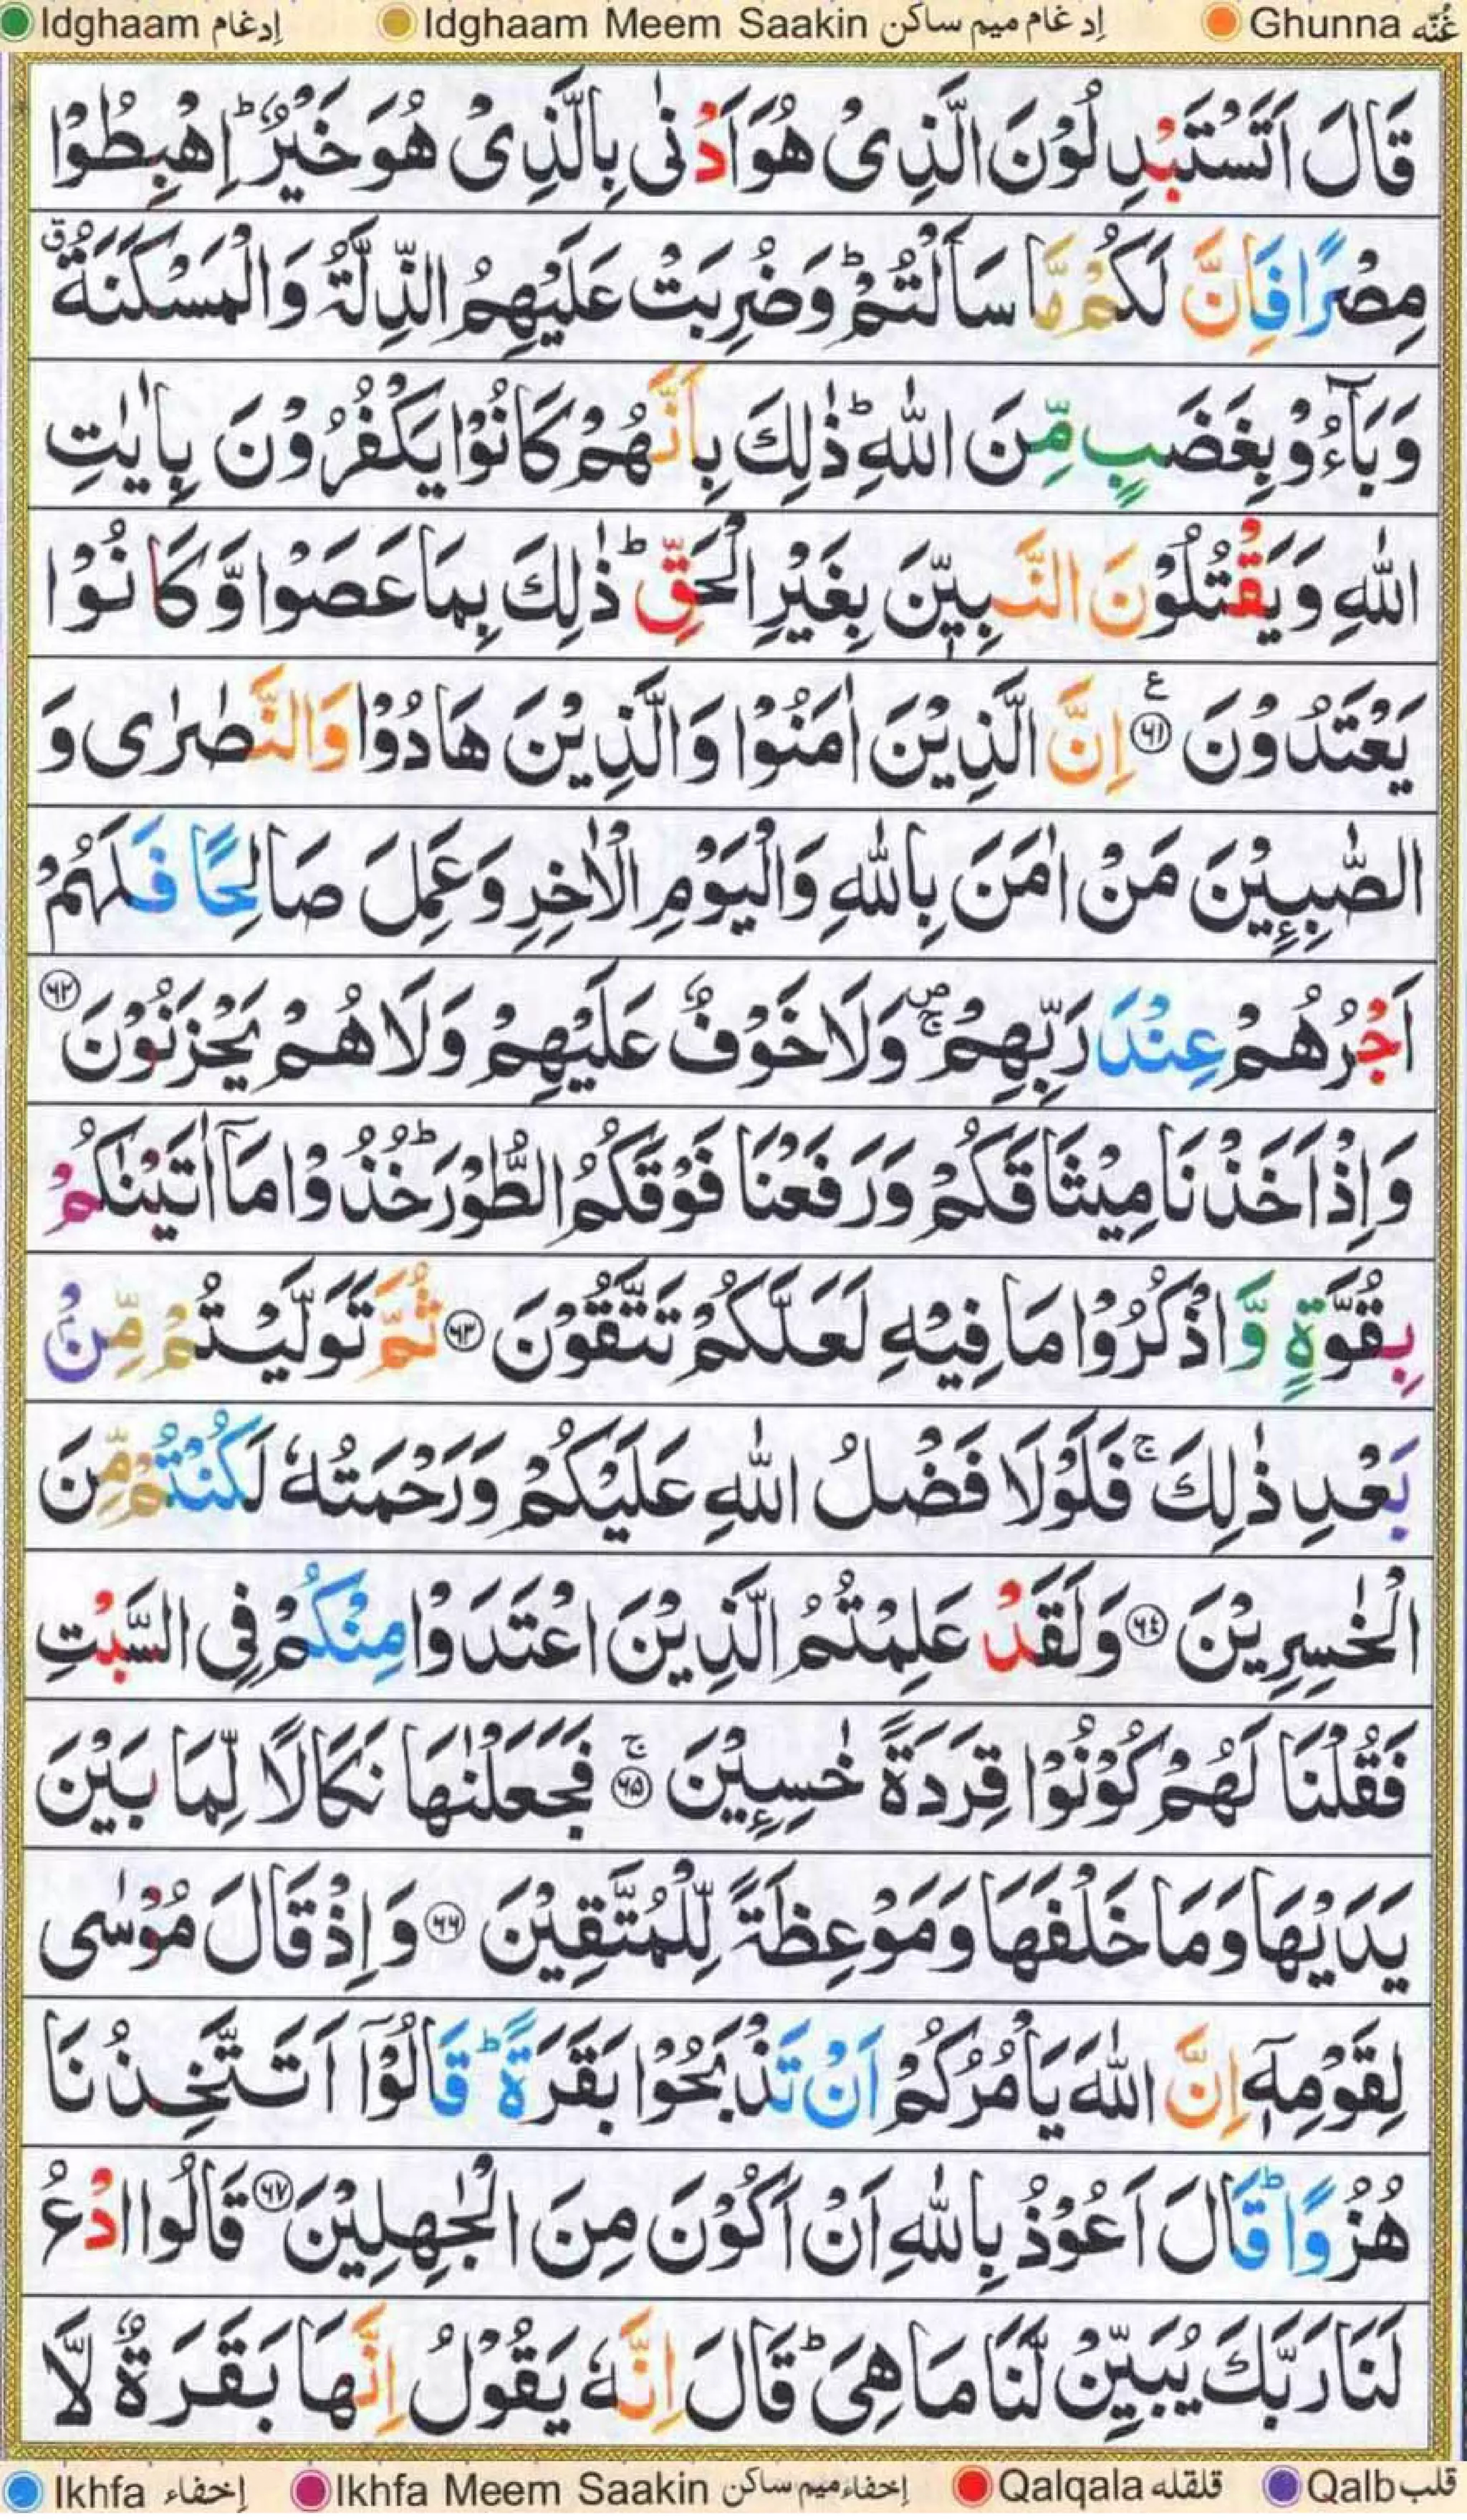 Idghaam إدغام Idghaam Meem Saakin إدغام ميم ساكن Ghunna غُنّه
قَالَ اَتَسْتَبْدِلُوْنَ الَّذِىْ هُوَ اَدْنٰى بِالَّذِىْ هُوَ خَيْرٌؕ اِهْبِطُوْا
مِصْرًا فَاِنَّ لَكُمْ مَّا سَاَلْتُمْؕ وَضُرِبَتْ عَلَيْهِمُ الذِّلَّةُ وَالْمَسْكَنَةُۗ
وَبَآءُوْ بِغَضَبٍ مِّنَ اللّٰهِؕ ذٰلِكَ بِاَنَّهُمْ كَانُوْا يَكْفُرُوْنَ بِاٰيٰتِ
اللّٰهِ وَيَقْتُلُوْنَ النَّبِيّٖنَ بِغَيْرِ الْحَقِّؕ ذٰلِكَ بِمَا عَصَوْا وَّكَانُوْا
يَعْتَدُوْنَ ﴿۶۱﴾ ع اِنَّ الَّذِيْنَ اٰمَنُوْا وَالَّذِيْنَ هَادُوْا وَالنَّصٰرٰى وَ
الصّٰبِـِٕيْنَ مَنْ اٰمَنَ بِاللّٰهِ وَالْيَوْمِ الْاٰخِرِ وَعَمِلَ صَالِحًا فَلَهُمْ
اَجْرُهُمْ عِنْدَ رَبِّهِمْۚۖ وَلَا خَوْفٌ عَلَيْهِمْ وَلَا هُمْ يَحْزَنُوْنَ ﴿۶۲﴾
وَاِذْ اَخَذْنَا مِيْثَاقَكُمْ وَرَفَعْنَا فَوْقَكُمُ الطُّوْرَؕ خُذُوْا مَآ اٰتَيْنٰكُمْ
بِقُوَّةٍ وَّاذْكُرُوْا مَا فِيْهِ لَعَلَّكُمْ تَتَّقُوْنَ ﴿۶۳﴾ ثُمَّ تَوَلَّيْتُمْ مِّنْۢ
بَعْدِ ذٰلِكَۚ فَلَوْلَا فَضْلُ اللّٰهِ عَلَيْكُمْ وَرَحْمَتُهٗ لَكُنْتُمْ مِّنَ
الْخٰسِرِيْنَ ﴿۶۴﴾ وَلَقَدْ عَلِمْتُمُ الَّذِيْنَ اعْتَدَوْا مِنْكُمْ فِى السَّبْتِ
فَقُلْنَا لَهُمْ كُوْنُوْا قِرَدَةً خٰسِـِٕيْنَۚ ﴿۶۵﴾ فَجَعَلْنٰهَا نَكَالًا لِّمَا بَيْنَ
يَدَيْهَا وَمَا خَلْفَهَا وَمَوْعِظَةً لِّلْمُتَّقِيْنَ ﴿۶۶﴾ وَاِذْ قَالَ مُوْسٰى
لِقَوْمِهٖٓ اِنَّ اللّٰهَ يَاْمُرُكُمْ اَنْ تَذْبَحُوْا بَقَرَةًؕ قَالُوْٓا اَتَتَّخِذُنَا
هُزُوًاؕ قَالَ اَعُوْذُ بِاللّٰهِ اَنْ اَكُوْنَ مِنَ الْجٰهِلِيْنَ ﴿۶۷﴾ قَالُوا ادْعُ
لَنَا رَبَّكَ يُبَيِّنْ لَّنَا مَا هِىَؕ قَالَ اِنَّهٗ يَقُوْلُ اِنَّهَا بَقَرَةٌ لَّا
Ikhfa إخفاء Ikhfa Meem Saakin إخفاء ميم ساكن Qalqala قلقله Qalb قلب